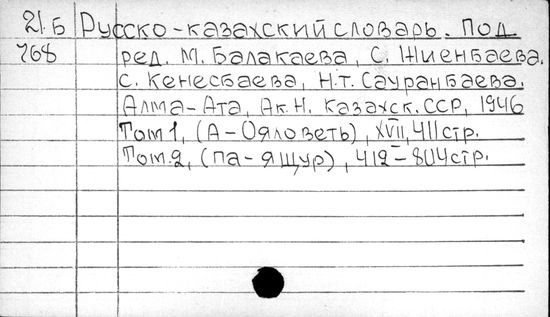 21.Б Русско-казахский словарь. Под
768 ред. М. Балакаева, С. Жиенбаева.
С. Кенесбаева, Н.Т. Сауранбаева.
Алма-Ата, Ак.Н. Казахск.ССР, 1946
Том 1, (А-Ояловеть), XVII, 411 стр.
Том.2, (па-ящур), 412-804 стр.